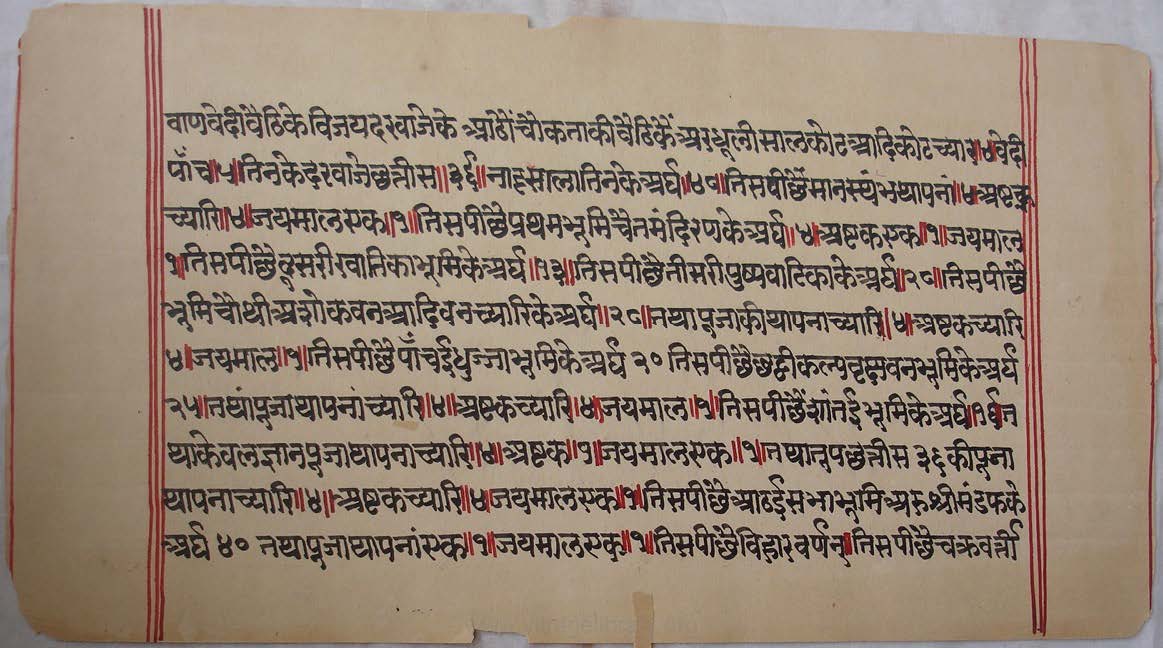 वाणवेदीवैठिकेविजयदरवाजेके आठौंचौकनाकीवैठिकैंअरधूलीसालकोटआदिकोटच्यार॥४॥वेदी
पाँच॥५॥तिनकेदरवाजेछत्तीस॥३६॥नाट्सालातिनकेअर्घ॥४८॥तिसपीछैंमानस्थंभथापनां॥४॥अष्टक
च्यारि॥४॥जयमालएक॥१॥तिसपीछैप्रथमभूमिचैतमंदिरएकेअर्घ॥४॥अष्टकएक॥१॥जयमाल
१॥तिसपीछैदूसरीखातिकाभूमिकेअर्घ॥१३॥तिसपीछैतीसरीपुष्पवाटिकाकेअर्घ॥२८॥तिसपीछै
भूमिचौथीअशोकवनआदिवनच्यारिकेअर्घ॥२८॥तथापूजाकीथापनाच्यारि॥४॥अष्टकच्यारि
४॥जयमाल॥१॥तिसपीछैपाँचईधुज्जाभूमिकेअर्घ २० तिसपीछैछट्ठीकल्पवृक्षवनभूमिकेअर्घ
२५॥तथांपूजाथापनांच्यारि॥४॥अष्टकच्यारि॥४॥जयमाल॥१॥तिसपीछैंशांतईभूमिकेअर्घ॥१६॥त
थाकेवलज्ञानपूजाथापनाच्यारि॥४॥अष्टक॥१॥जयमालएक॥१॥तथातूपछत्तीस ३६कीपूजा
थापनाच्यारि॥४॥अष्टकच्यारि॥४जयमालएक॥१॥तिसपीछैआठईसभाभूमिअरुश्रीमंडफके
अर्घ ४० तथापूजाथापनांएक॥१॥जयमालएक॥१॥तिसपीछैविहारवर्णन॥तिसपीछैचक्रवर्त्ती